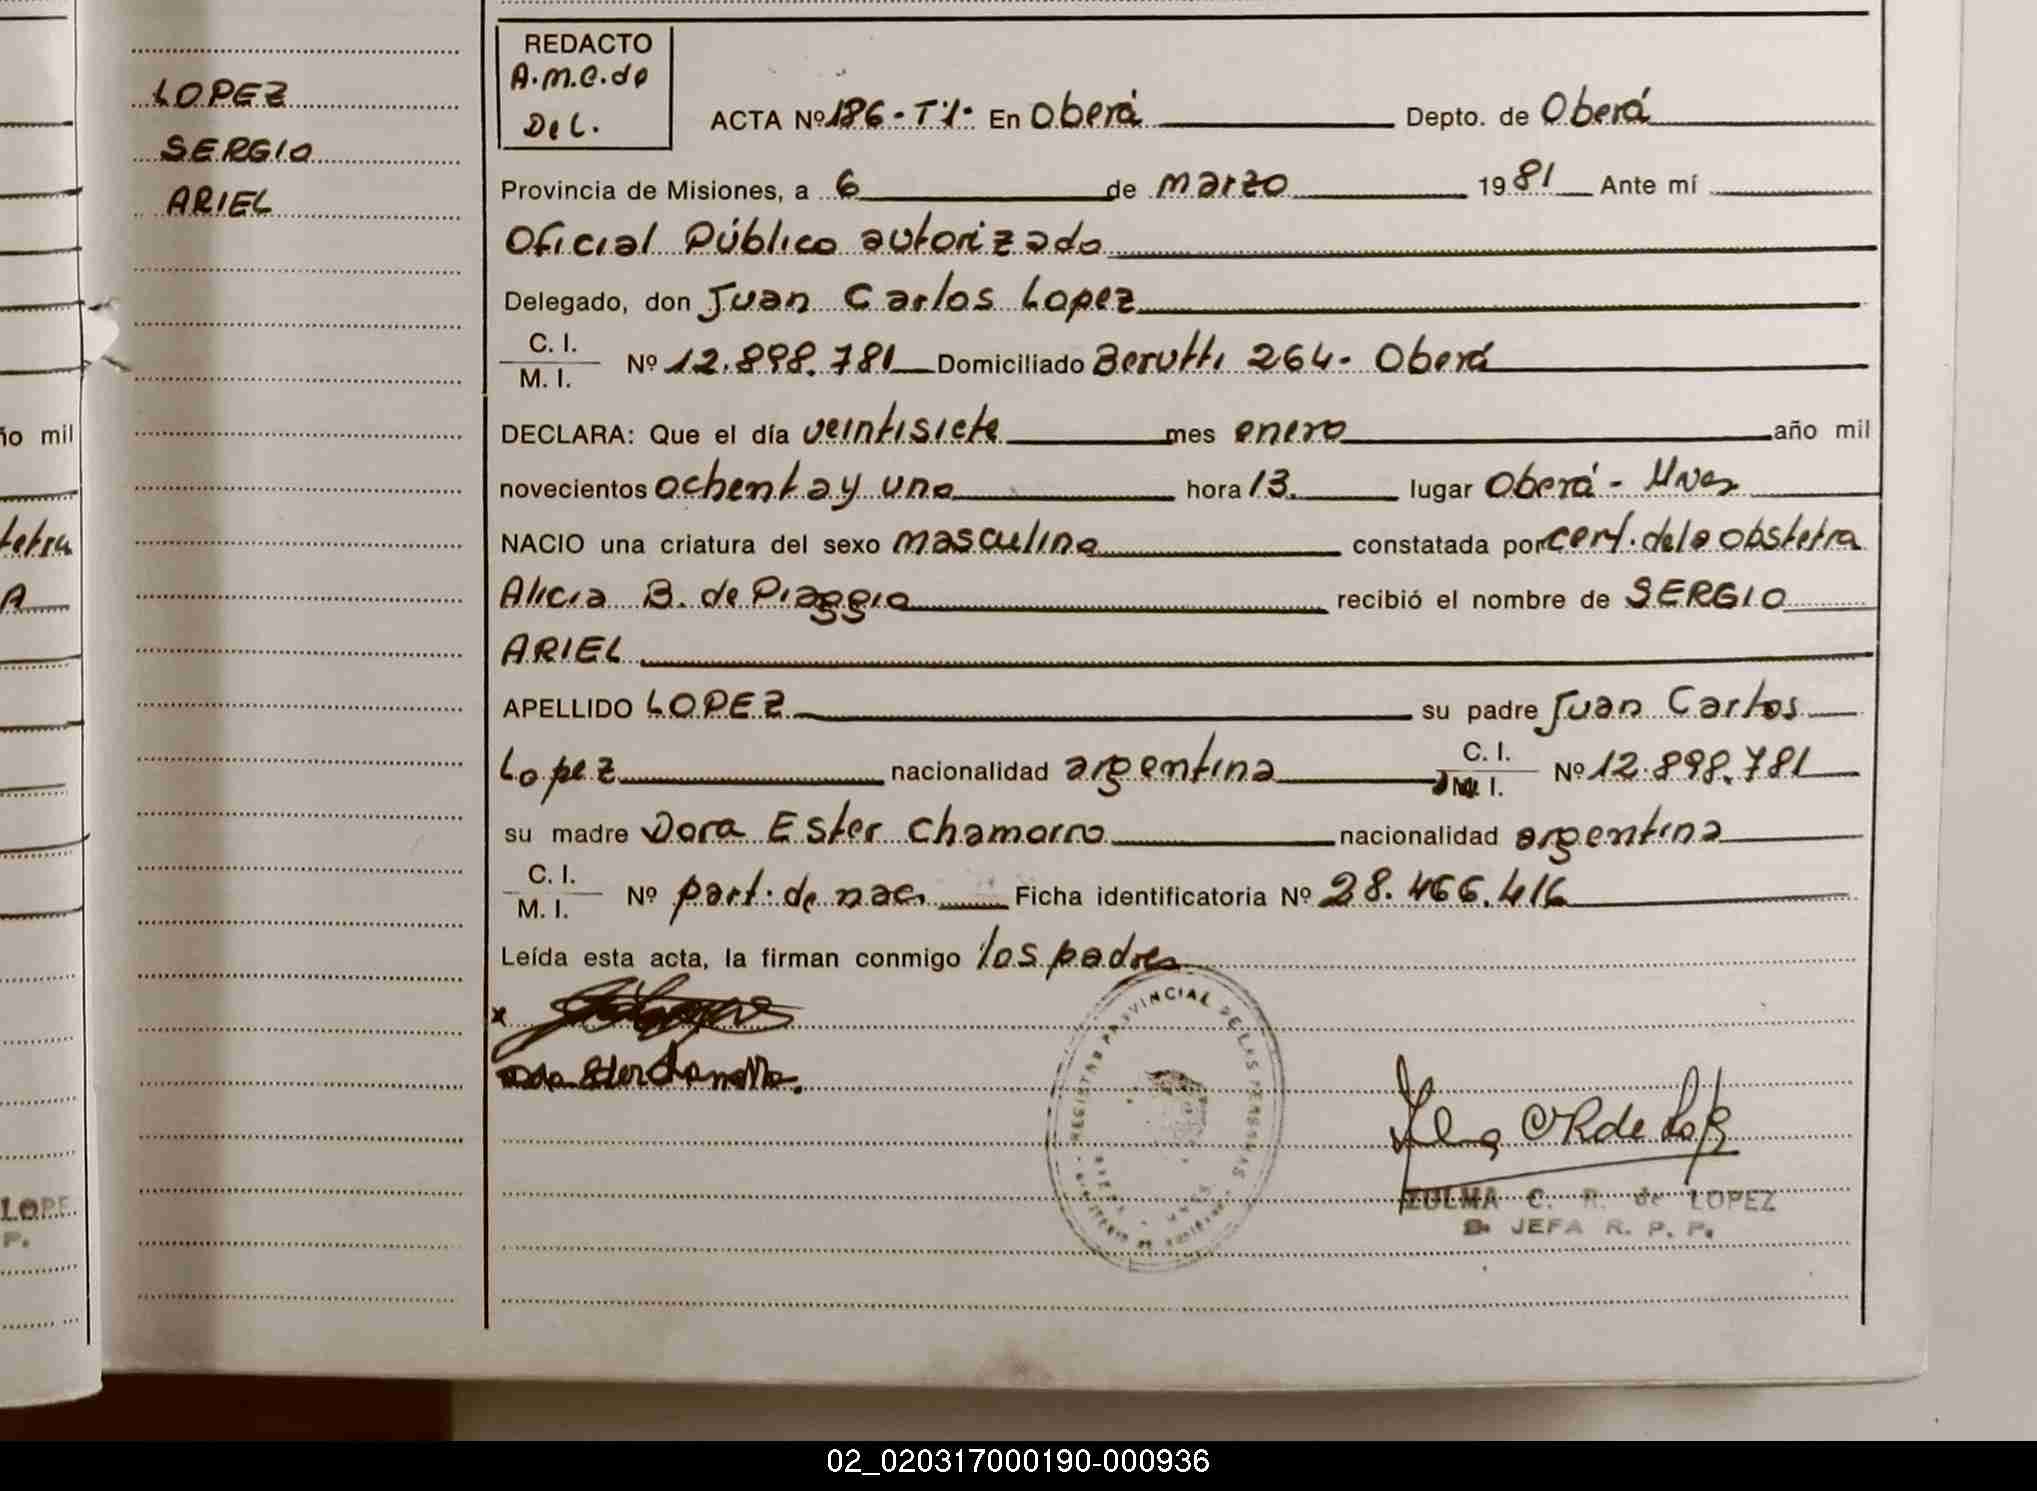 LOPEZ
SERGIO
ARIEL
REDACTO
A.M.C. de
Del.
ACTA Nº 186-Tº1- En Oberá Depto. de Oberá
Provincia de Misiones, a 6 de marzo 1981 Ante mí
Oficial Público autorizado
Delegado, don Juan Carlos Lopez
C. I.
M. I. Nº 12.898.781 Domiciliado Berutti 264- Oberá
DECLARA: Que el día veintisiete mes enero año mil
novecientos ochenta y uno hora 13. lugar Oberá - Mnes
NACIO una criatura del sexo masculino constatada por cert. de la obstetra
Alicia B. de Piaggio recibió el nombre de SERGIO
ARIEL
APELLIDO LOPEZ su padre Juan Carlos
Lopez nacionalidad argentina C. I. M. I. Nº 12.898.781
su madre Dora Ester Chamorro nacionalidad argentina
C. I.
M. I. Nº part. de nac. Ficha identificatoria Nº 28.466.416
Leída esta acta, la firman conmigo los padres
REGISTRO PROVINCIAL DE LAS PERSONAS
ZULMA C. R. de LOPEZ
JEFA R. P. P.
ño mil
tetra
A
LOPE
P.
02_020317000190-000936